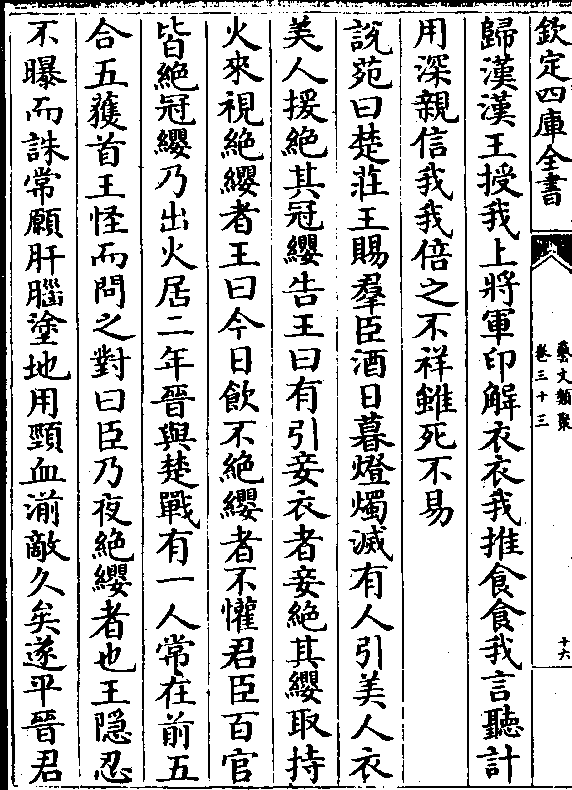 欽定四庫全書
藝文類聚
卷三十三
十六
歸漢漢王授我上將軍印解衣衣我推食食我言聽計
用深親信我我倍之不祥雖死不易
說苑曰楚莊王賜羣臣酒日暮燈燭滅有人引美人衣
美人援絶其冠纓告王曰有引妾衣者妾絶其纓取持
火來視絶纓者王曰今日飲不絶纓者不懽君臣百官
皆絶冠纓乃出火居二年晉與楚戰有一人常在前五
合五獲首王怪而問之對曰臣乃夜絶纓者也王隱忍
不曝而誅常願肝腦塗地用頸血湔敵久矣遂平晉君